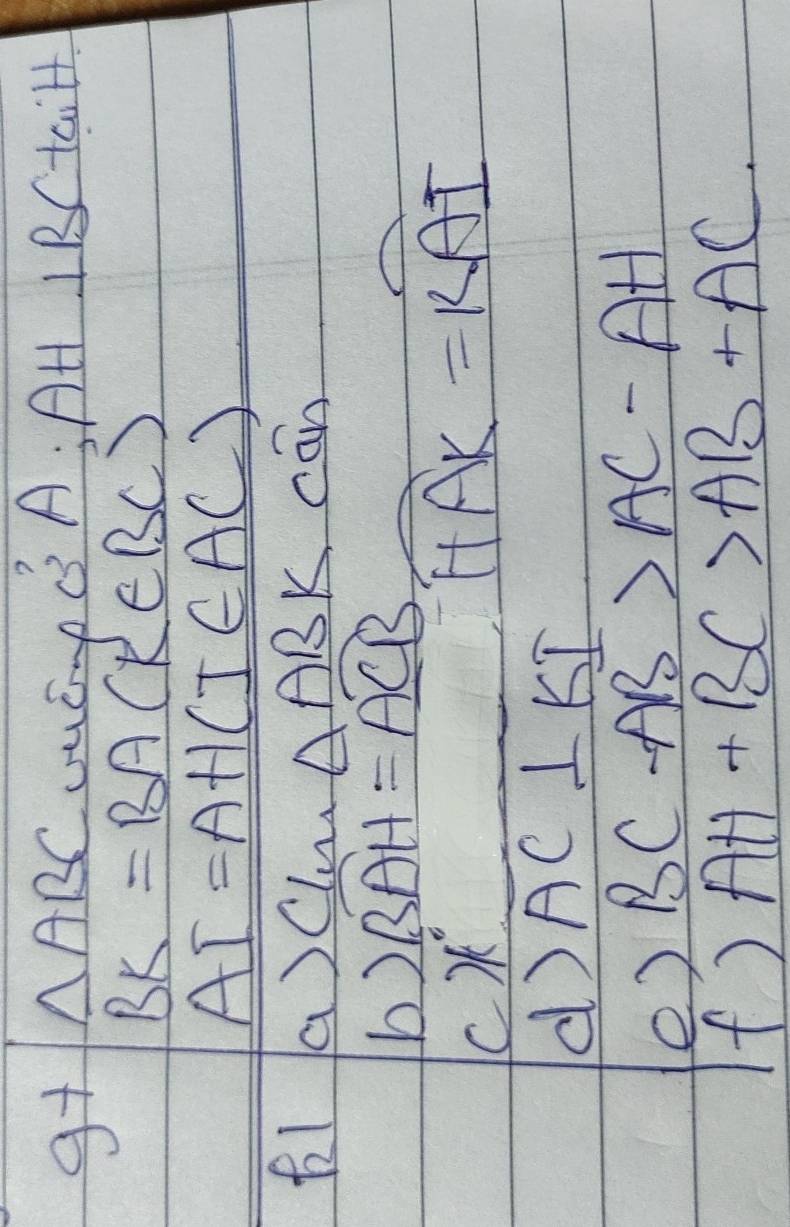 gt ΔABC vuông ở A. AH ⊥BC tại H.
BK = BA (K ∈ BC)
AI = AH (I ∈ AC)
kl a) Cm ΔABK cân
b) \widehat{BAH} = \widehat{ACB}
c) \widehat{HAK} = \widehat{KAI}
d) AC ⊥ KI
e) BC - AB > AC - AH
f) AH + BC > AB + AC.